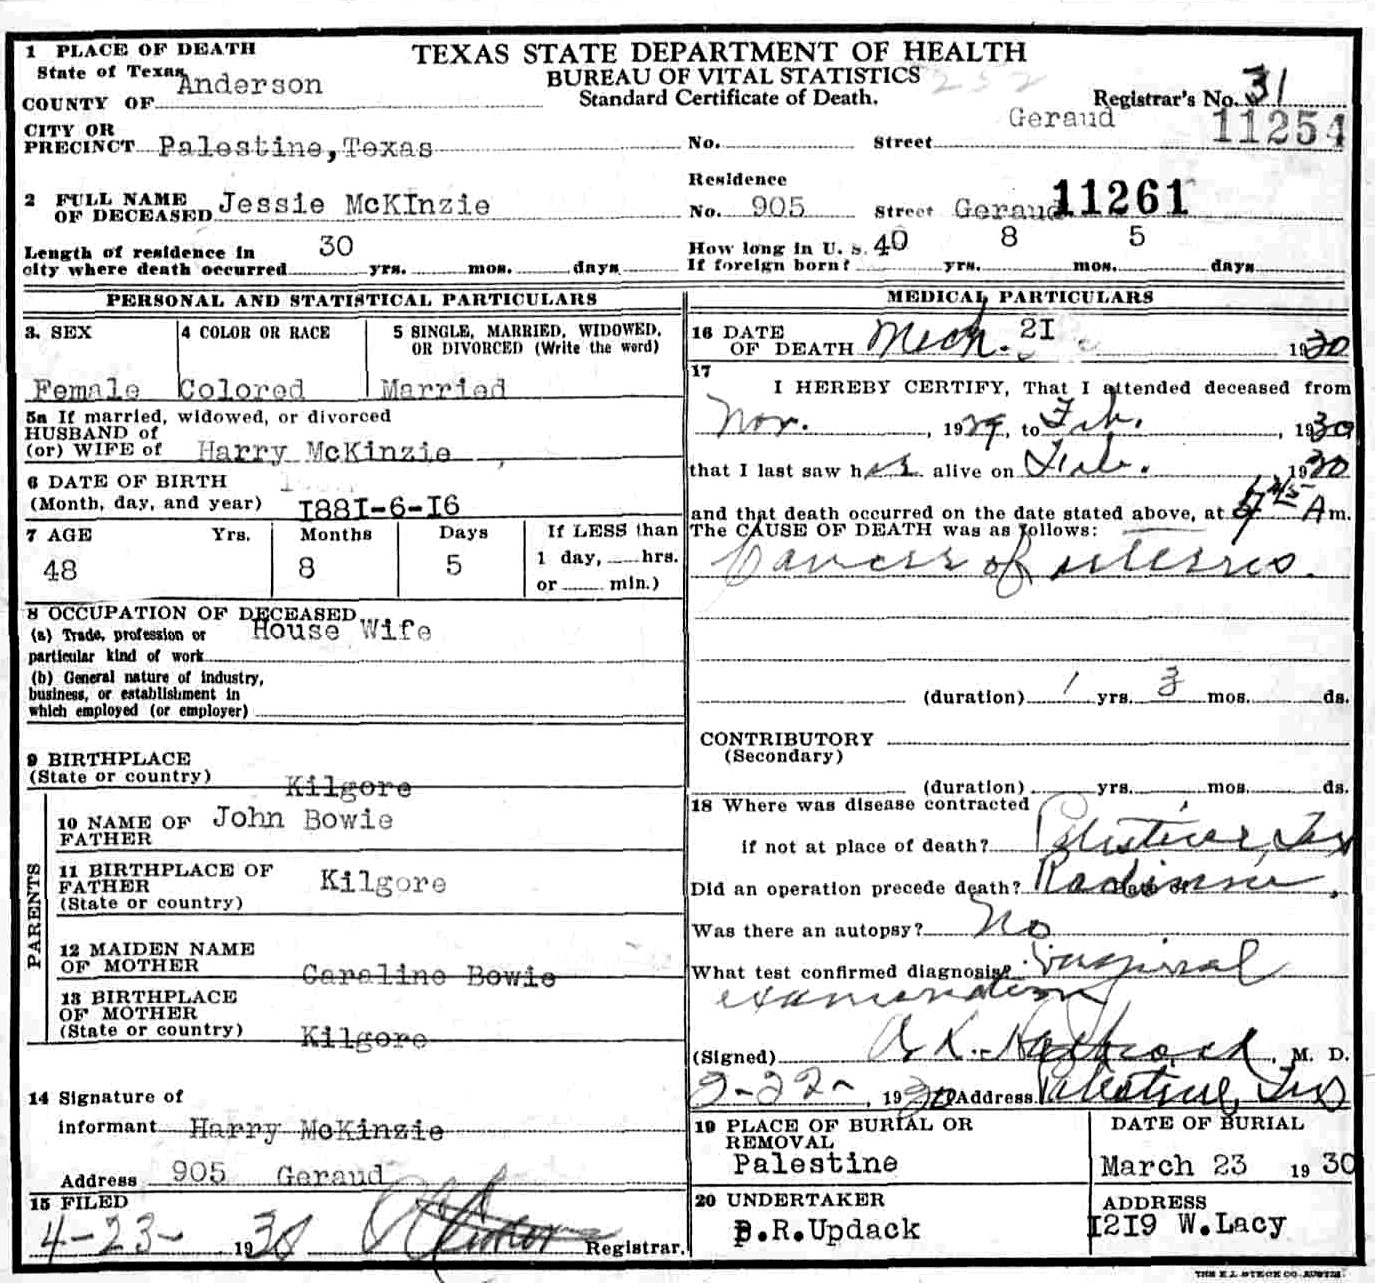 1 PLACE OF DEATH
State of Texas
COUNTY OF Anderson
TEXAS STATE DEPARTMENT OF HEALTH
BUREAU OF VITAL STATISTICS
Standard Certificate of Death.
Registrar's No. 31
11254
CITY OR
PRECINCT Palestine,Texas No. Street Geraud
2 FULL NAME
OF DECEASED Jessie McKInzie
Residence
No. 905 Street Geraud 11261
Length of residence in
city where death occurred 30 yrs. mos. days
How long in U. S.
If foreign born? 40 yrs. 8 mos. 5 days
PERSONAL AND STATISTICAL PARTICULARS
3. SEX
Female
4 COLOR OR RACE
Colored
5 SINGLE, MARRIED, WIDOWED,
OR DIVORCED (Write the word)
Married
5a If married, widowed, or divorced
HUSBAND of
(or) WIFE of Harry McKinzie
6 DATE OF BIRTH
(Month, day, and year) I88I-6-I6
7 AGE Yrs. Months Days
48 8 5
If LESS than
1 day, hrs.
or min.)
8 OCCUPATION OF DECEASED
(a) Trade, profession or
particular kind of work House Wife
(b) General nature of industry,
business, or establishment in
which employed (or employer)
9 BIRTHPLACE
(State or country) Kilgore
PARENTS
10 NAME OF
FATHER John Bowie
11 BIRTHPLACE OF
FATHER
(State or country) Kilgore
12 MAIDEN NAME
OF MOTHER Caroline Bowie
13 BIRTHPLACE
OF MOTHER
(State or country) Kilgore
14 Signature of
informant Harry McKinzie
Address 905 Geraud
15 FILED
4-23- 1930 Registrar.
MEDICAL PARTICULARS
16 DATE
OF DEATH Mch. 2I 1930
17
I HEREBY CERTIFY, That I attended deceased from
Nov. , 1929, to Feb. , 1930
that I last saw her alive on Feb. 1930
and that death occurred on the date stated above, at A m.
The CAUSE OF DEATH was as follows:
Cancer of uterus.
(duration) 1 yrs. 3 mos. ds.
CONTRIBUTORY
(Secondary)
(duration) yrs. mos. ds.
18 Where was disease contracted
if not at place of death? Palestine, Tex
Did an operation precede death?
Was there an autopsy? No
What test confirmed diagnosis? Vaginal
examination
(Signed) , M. D.
-22- , 1930 Address Palestine, Tex
19 PLACE OF BURIAL OR
REMOVAL
Palestine
DATE OF BURIAL
March 23 1930
20 UNDERTAKER
D.R.Updack
ADDRESS
I2I9 W.Lacy
THE E.L. STECK CO. AUSTIN